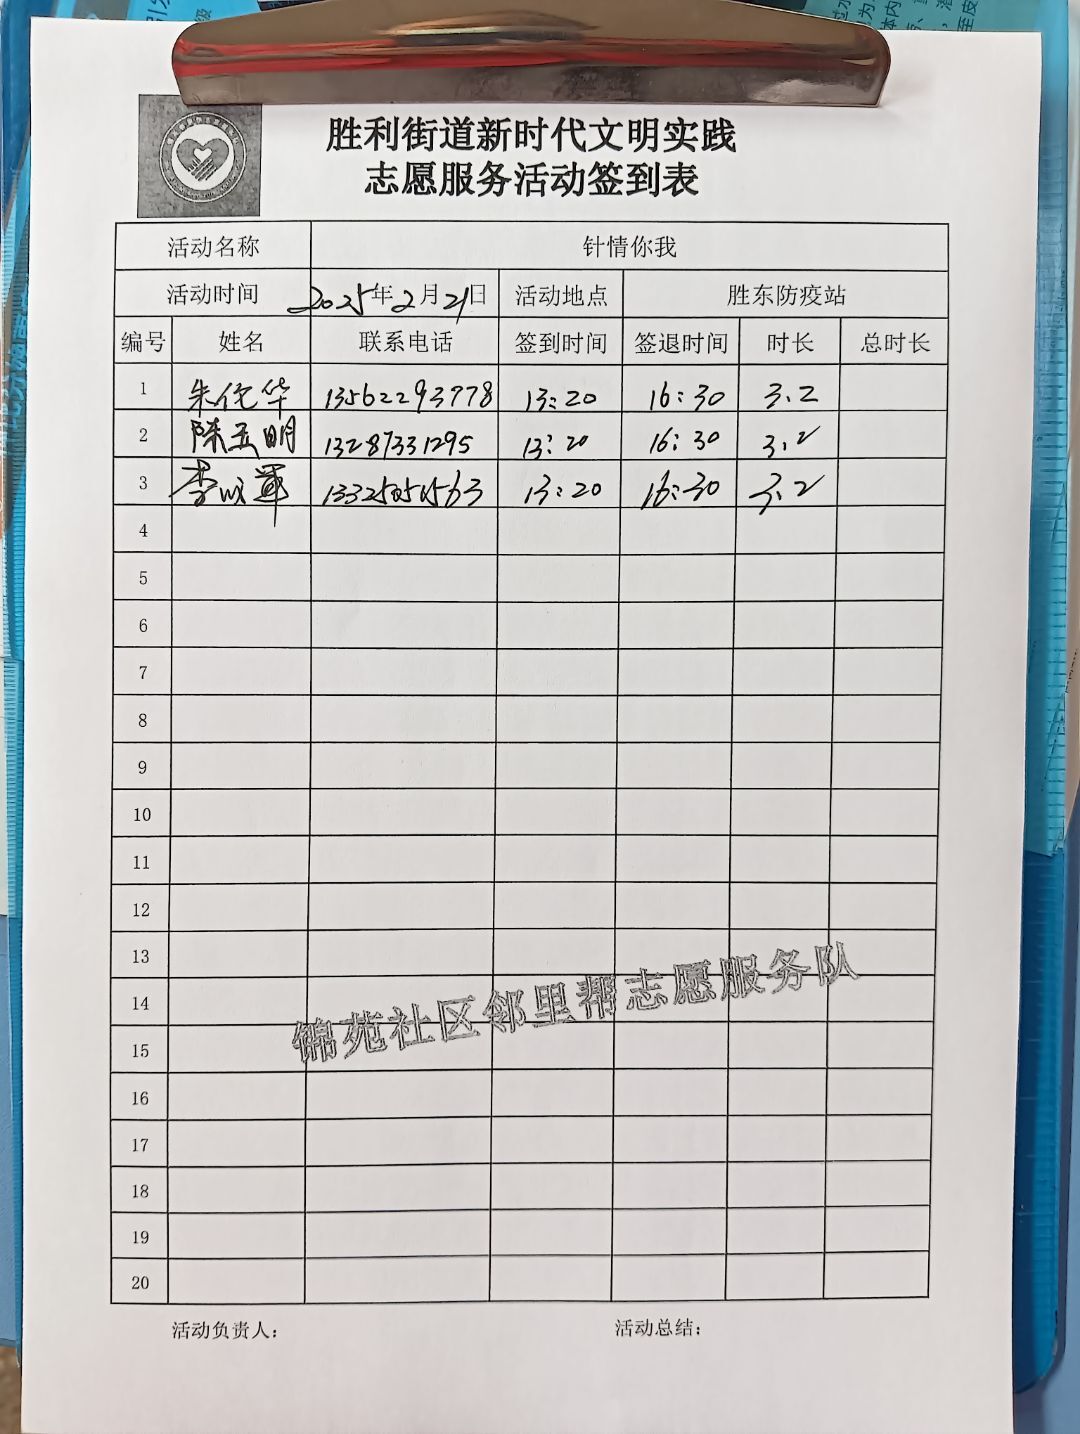 胜利街道新时代文明实践
志愿服务活动签到表
活动名称 针情你我
活动时间 2025年2月21日 活动地点 胜东防疫站
编号 姓名 联系电话 签到时间 签退时间 时长 总时长
1 朱伦华 13562293778 13:20 16:30 3.2
2 陈玉明 13287331295 13:20 16:30 3.2
3 李 军 13:20 16:30 3.2
4
5
6
7
8
9
10
11
12
13
14
锦苑社区邻里帮志愿服务队
15
16
17
18
19
20
活动负责人: 活动总结: